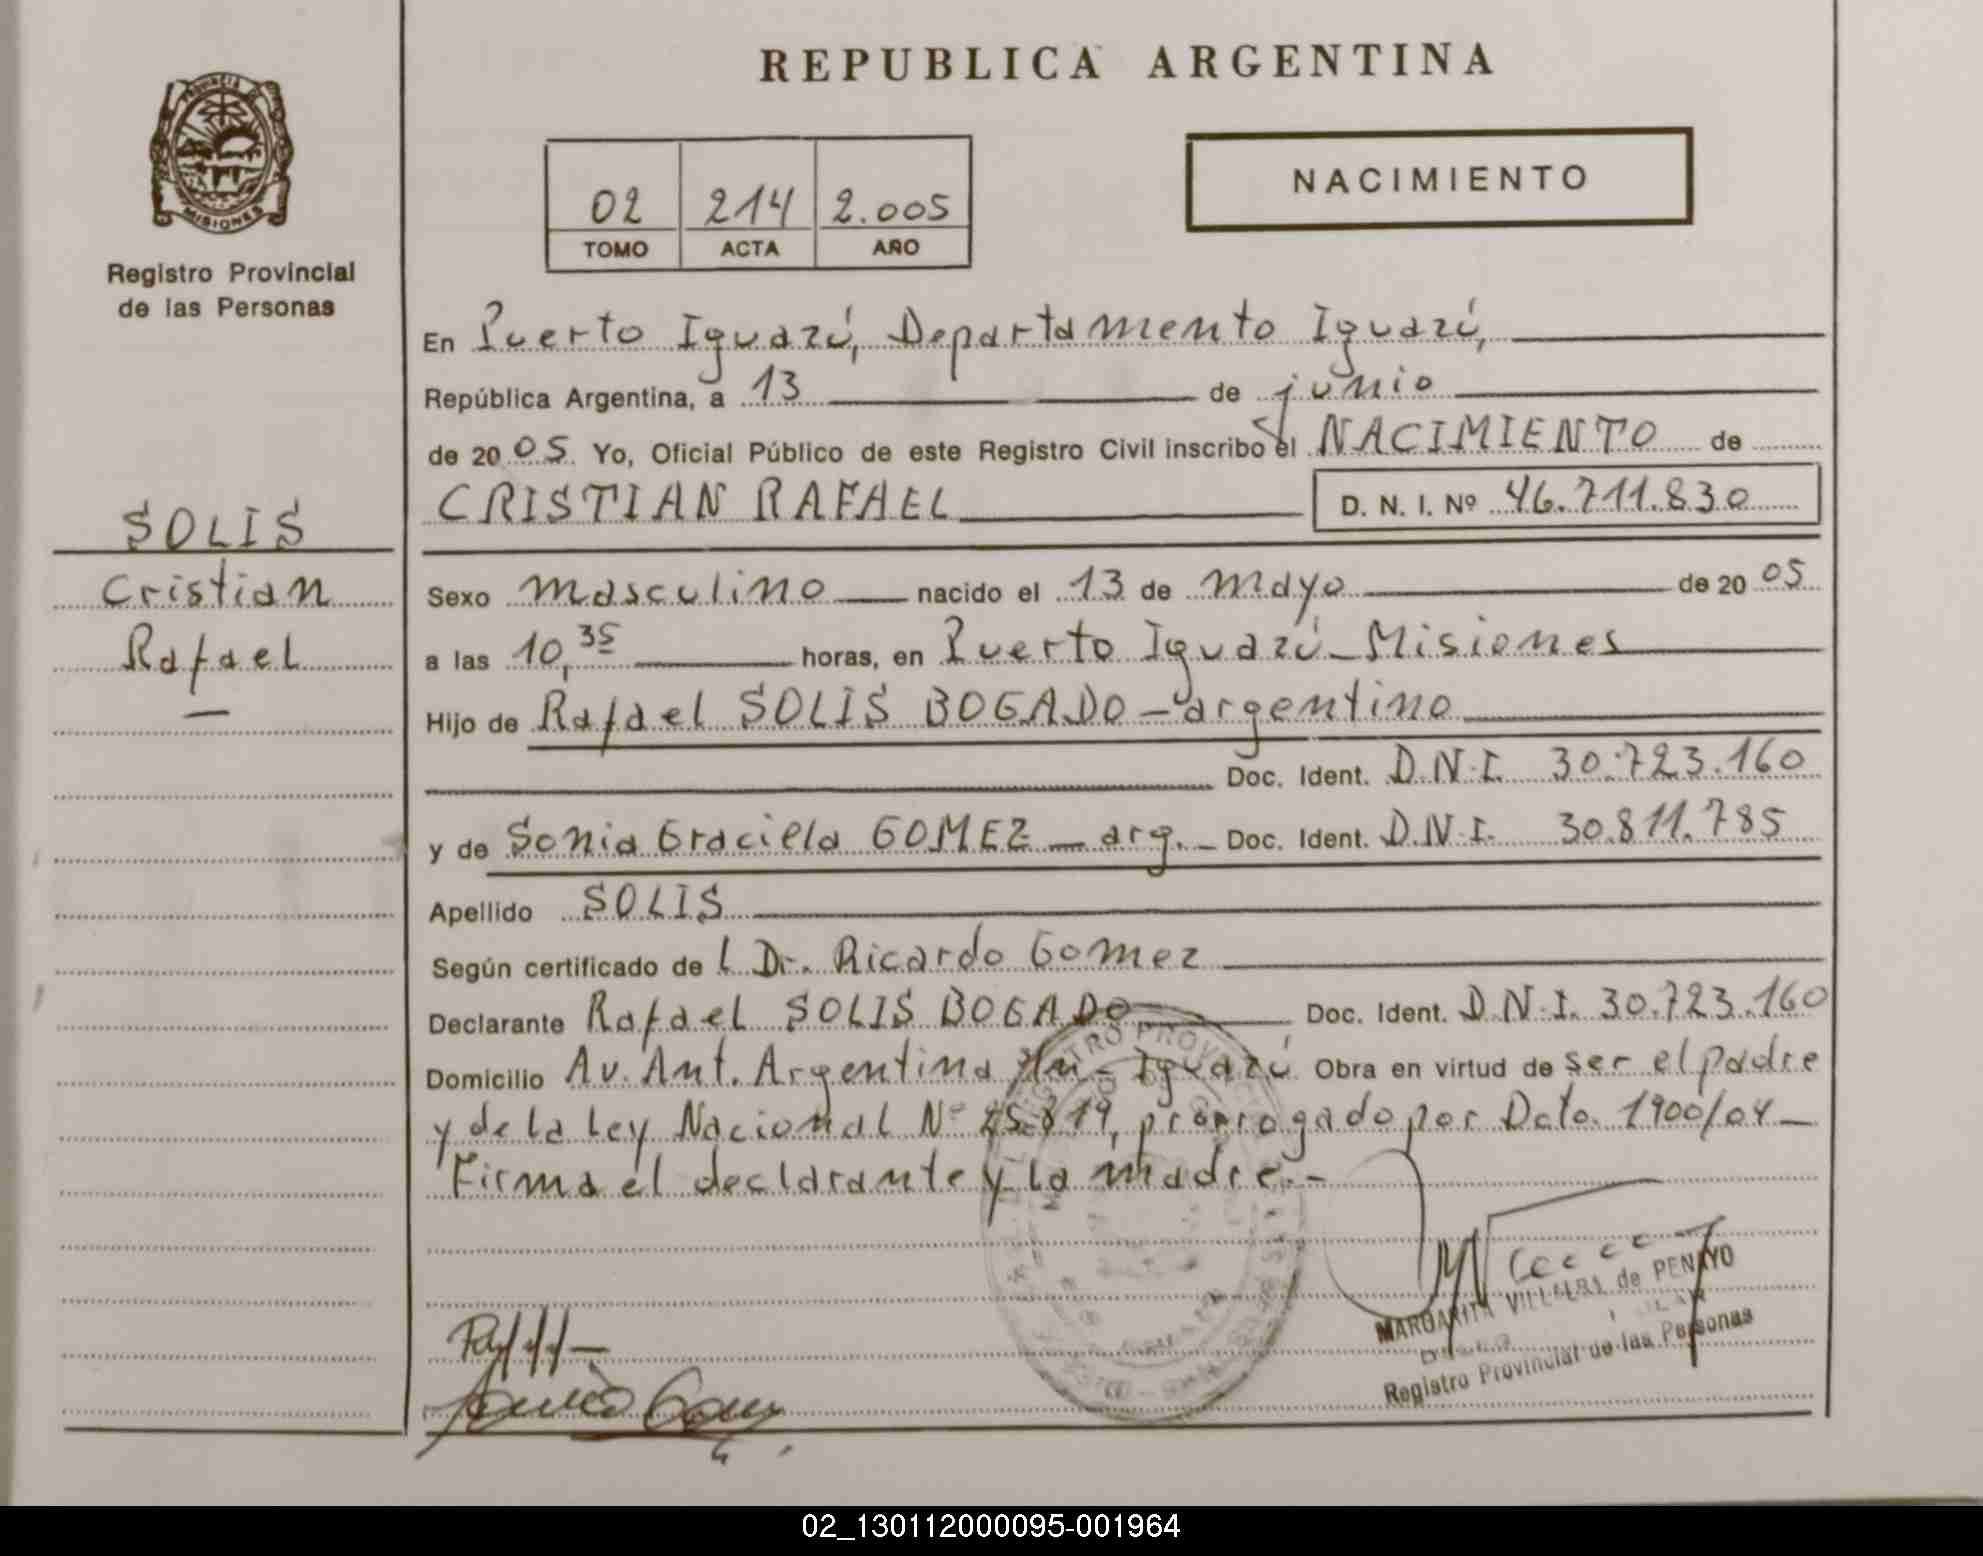 REPUBLICA ARGENTINA
PROVINCIA DE
MISIONES
Registro Provincial
de las Personas
02 214 2.005
TOMO ACTA AÑO
NACIMIENTO
En Puerto Iguazú, Departamento Iguazú,
República Argentina, a 13 de junio
de 2005 Yo, Oficial Público de este Registro Civil inscribo el NACIMIENTO de
CRISTIAN RAFAEL D. N. I. Nº 46.711.830
SOLIS
Cristian
Rafael
Sexo masculino nacido el 13 de mayo de 2005
a las 10,35 horas, en Puerto Iguazú - Misiones
Hijo de Rafael SOLIS BOGADO - argentino
Doc. Ident. D.N.I. 30.723.160
y de Sonia Graciela GOMEZ - arg. - Doc. Ident. D.N.I. 30.811.785
Apellido SOLIS
Según certificado de l Dr. Ricardo Gomez
Declarante Rafael SOLIS BOGADO Doc. Ident. D.N.I. 30.723.160
Domicilio Av. Ant. Argentina s/n - Iguazú Obra en virtud de ser el padre
y de la Ley Nacional Nº 25.819, prorrogado por Dcto. 1900/04 -
Firma el declarante y la madre.-
MARGARITA VILLALBA de PENAYO
Registro Provincial de las Personas
02_130112000095-001964